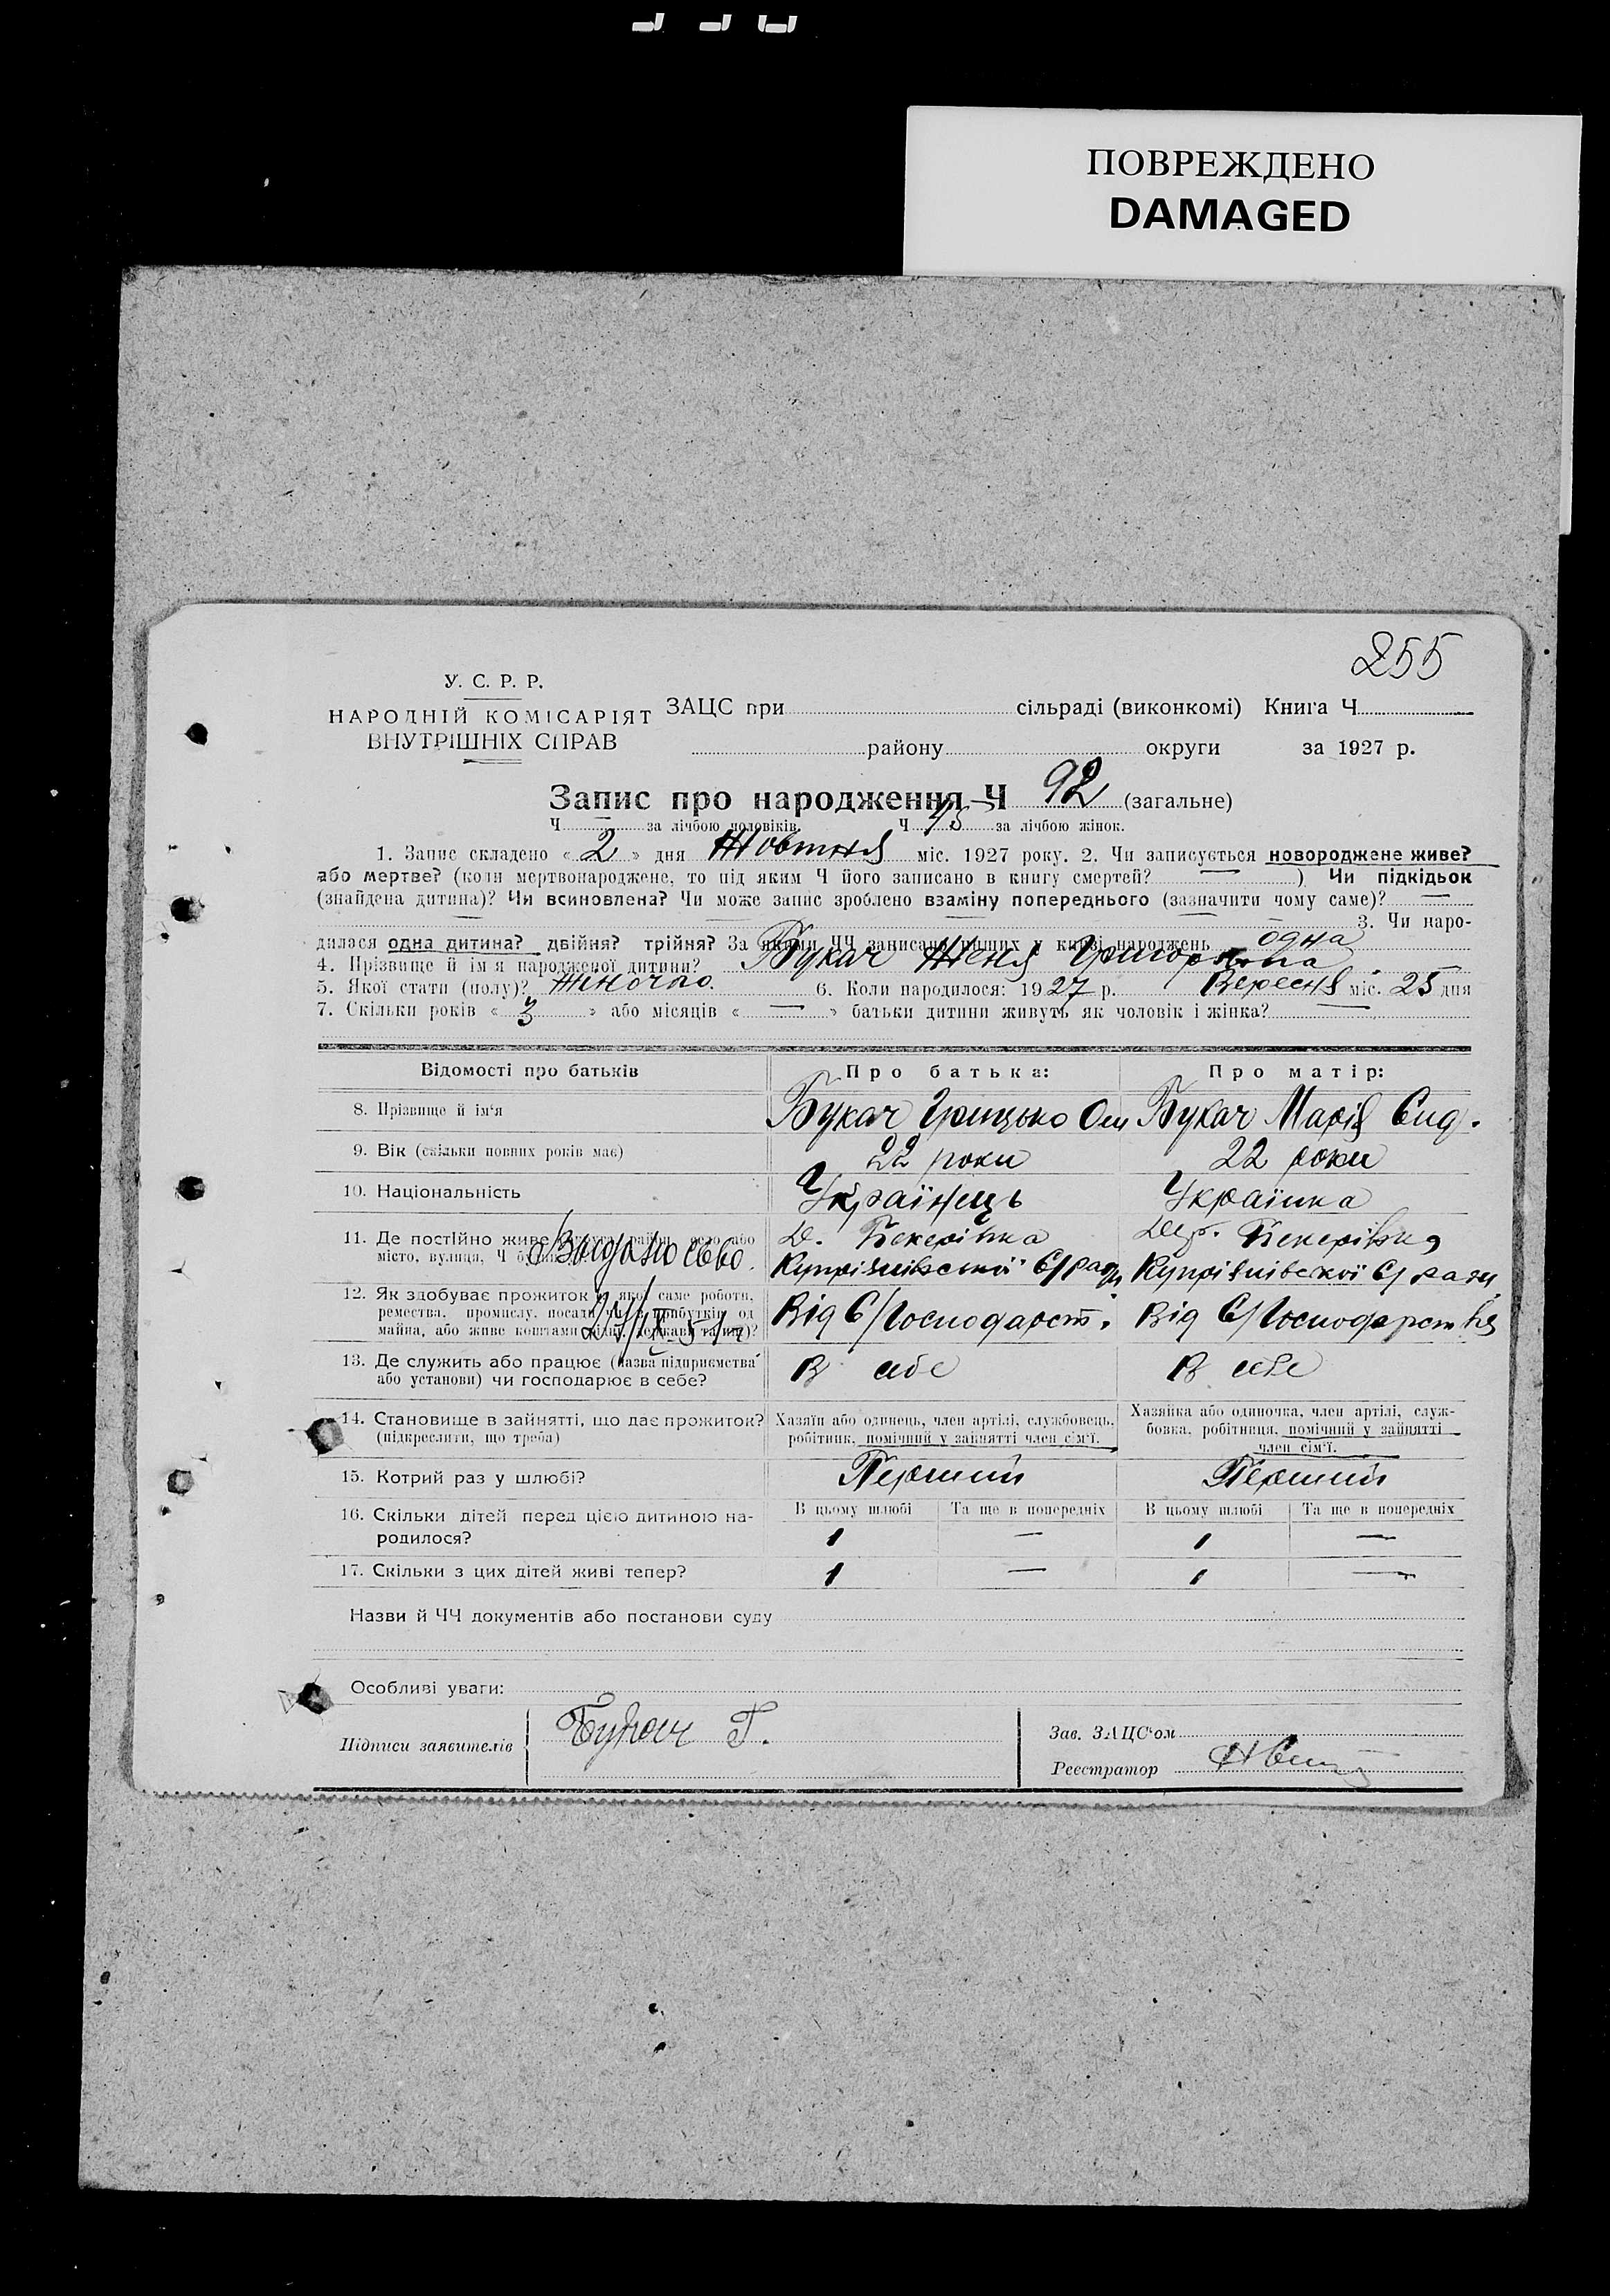 ПОВРЕЖДЕНО
DAMAGED
255
У. С. Р. Р.
НАРОДНІЙ КОМІСАРІЯТ
ВНУТРІШНІХ СПРАВ
ЗАЦС при сільраді (виконкомі) Книга Ч
району округи за 1927 р.
Запис про народження Ч 92 (загальне)
Ч — за лічбою чоловіків Ч 43 за лічбою жінок.
1. Запис складено « 2 » дня Жовтня міс. 1927 року. 2. Чи записується новороджене живе?
або мертве? (коли мертвонароджене, то під яким Ч його записано в книгу смертей? — ) Чи підкідьок
(знайдена дитина)? Чи всиновлена? Чи може запис зроблено взаміну попереднього (зазначити чому саме)? —
— — — — 3. Чи наро-
дилася одна дитина? двійня? трійня? За якими ЧЧ записано инших у книзі народжень одна
4. Прізвище й ім'я народженої дитини? Букач Женя Григоровна
5. Якої стати (полу)? Жіночло. 6. Коли народилося: 1927 р. Вересня міс. 25 дня
7. Скільки років « 3 » або місяців « — » батьки дитини живуть як чоловік і жінка? —
Відомості про батьків Про батька: Про матір:
8. Прізвище й ім'я Букач Грицько Ом Букач Марія Сид.
9. Вік (скільки повних років має) 22 роки 22 роки
10. Національність Українець Українка
11. Де постійно живе або Д. Бекерівка Дер. Бекерівка
місто, вулиця, Ч Выдано св-во. Купріянівської С/ради Купріянівської С/ради
12. Як здобуває прожиток саме роботи, Від С/Господарст. Від С/Господарства
ремества, промислу, посади од
майна, або живе коштами
13. Де служить або працює (назва підприємства В себе В себе
або установи) чи господарює в себе?
14. Становище в зайнятті, що дає прожиток? Хазяїн або одинець, член артілі, службовець, Хазяйка або одиночка, член артілі, служ-
(підкреслити, що треба) робітник, помічний у зайнятті член сім'ї. бовка, робітниця, помічний у зайнятті
член сім'ї.
15. Котрий раз у шлюбі? Перший Перший
16. Скільки дітей перед цією дитиною на- В цьому шлюбі Та ще в попередніх В цьому шлюбі Та ще в попередніх
родилося? 1 — 1 —
17. Скільки з цих дітей живі тепер? 1 — 1 —
Назви й ЧЧ документів або постанови суду
Особливі уваги:
Підписи заявителів Букач Г. Зав. ЗАЦС'ом
Реєстратор